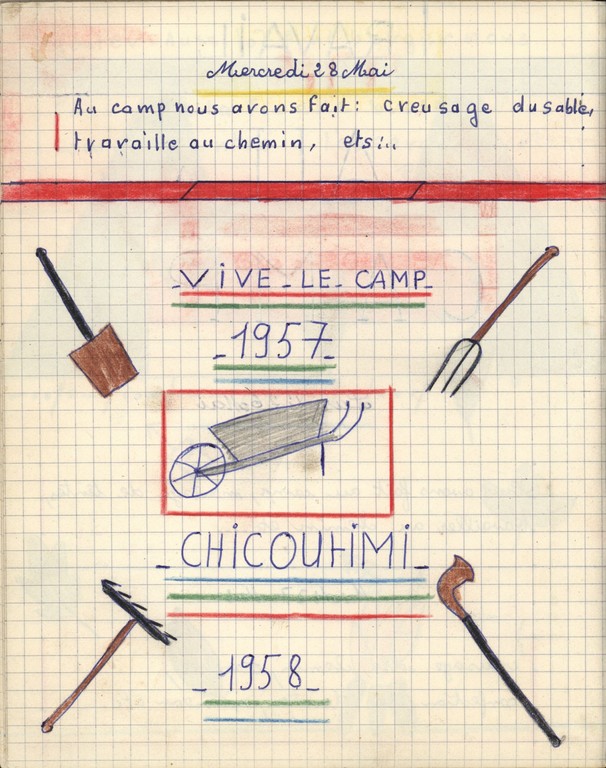 Mercredi 28 Mai
Au camp nous avons fait: creusage du sable,
travaille au chemin, ets...
-VIVE-LE-CAMP-
-1957-
-CHICOUTIMI-
-1958-